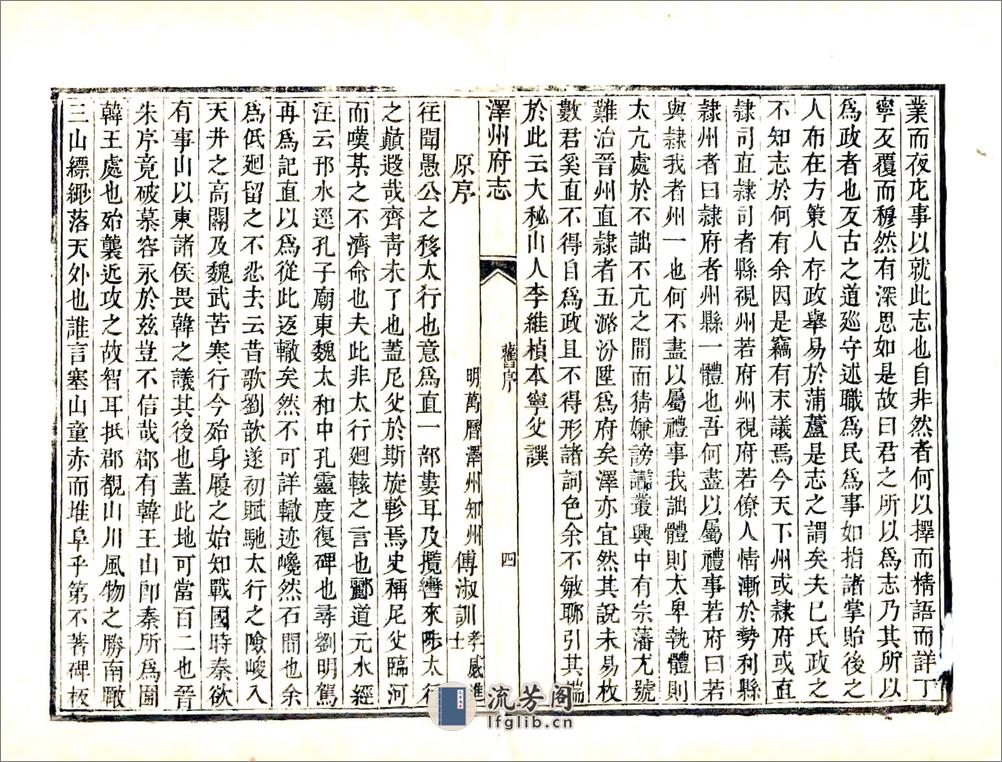 業而夜庀事以就此志也自非然者何以擇而精語而詳丁
寧反覆而穆然有深思如是故曰君之所以為志乃其所以
為政者也反古之道廵守述職為民為事如指諸掌貽後之
人布在方策人存政舉易於蒲蘆是志之謂矣夫已氏政之
不知志於何有余因是竊有末議焉今天下州或隷府或直
隷司直隷司者縣視州若府州視府若僚人情漸於勢利縣
隷州者曰隷府者州縣一體也吾何盡以屬禮事若府曰若
與隷我者州一也何不盡以屬禮事我詘體則太卑執體則
太亢處於不詘不亢之間而猜嫌謗讟叢興中有宗藩尤號
難治晉州直隷者五潞汾陞為府矣澤亦宜然其說未易枚
數君奚直不得自為政且不得形諸詞色余不敏聊引其端
於此云大秘山人李維楨本寧父譔
澤州府志
舊序
四
原序
明萬曆澤州知州傅淑訓孝感進士
往聞愚公之移太行也意為直一部婁耳及攬轡來陟太行
之巔遐哉齊靑未了也蓋尼父於斯旋軫焉史稱尼父臨河
而嘆某之不濟命也夫此非太行廻轅之言也酈道元水經
注云邘水逕孔子廟東魏太和中孔靈度復碑也尋劉明駕
再為記直以為從此返轍矣然不可詳轍迹巉然石間也余
為低廻留之不忍去云昔歌劉歆遂初賦馳太行之險峻入
天井之高關及魏武苦寒行今殆身履之始知戰國時秦欲
有事山以東諸侯畏韓之議其後也蓋此地可當百二也晉
朱序竟破慕容永於兹豈不信哉郡有韓王山卽秦所為圍
韓王處也殆襲近攻之故智耳抵郡覩山川風物之勝南瞰
三山縹緲落天外也誰言塞山童赤而堆阜乎第不著碑板
流芳阁
lfglib.cn